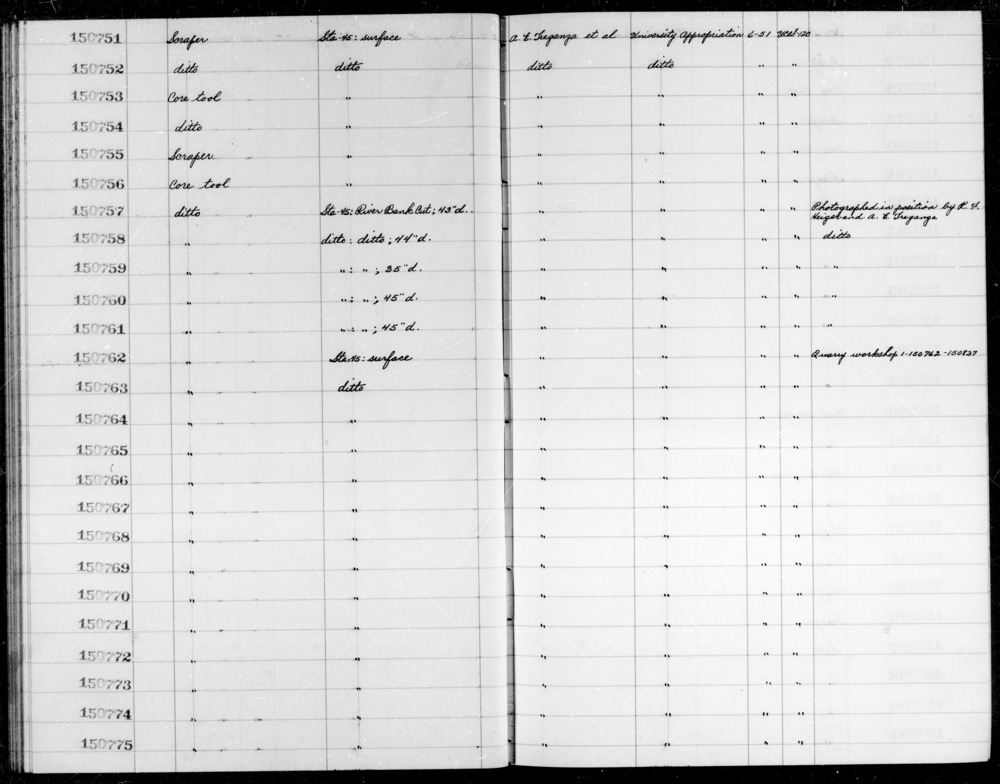 150751 Scraper Sta-45: surface A. E. Treganza et al University Appropriation 6-51 -120
150752 ditto ditto ditto ditto " "
150753 Core tool " " " " "
150754 ditto " " " " "
150755 Scraper " " " " "
150756 Core tool " " " " "
150757 ditto Sta-45: River Bank Cut; 43" d. " " " " Photographed in position by R. F.
Heizer and A. E. Treganza
150758 " ditto: ditto; 44" d. " " " " ditto
150759 " ": "; 35" d. " " " " "
150760 " ": "; 45" d. " " " " "
150761 " ": "; 45" d. " " " " "
150762 Sta.45: surface " " " " Quarry workshop 1-150762-150837
150763 " ditto " " " "
150764 " " " " " "
150765 " " " " " "
150766 " " " " " "
150767 " " " " " "
150768 " " " " " "
150769 " " " " " "
150770 " " " " " "
150771 " " " " " "
150772 " " " " " "
150773 " " " " " "
150774 " " " " " "
150775 " " " " " "